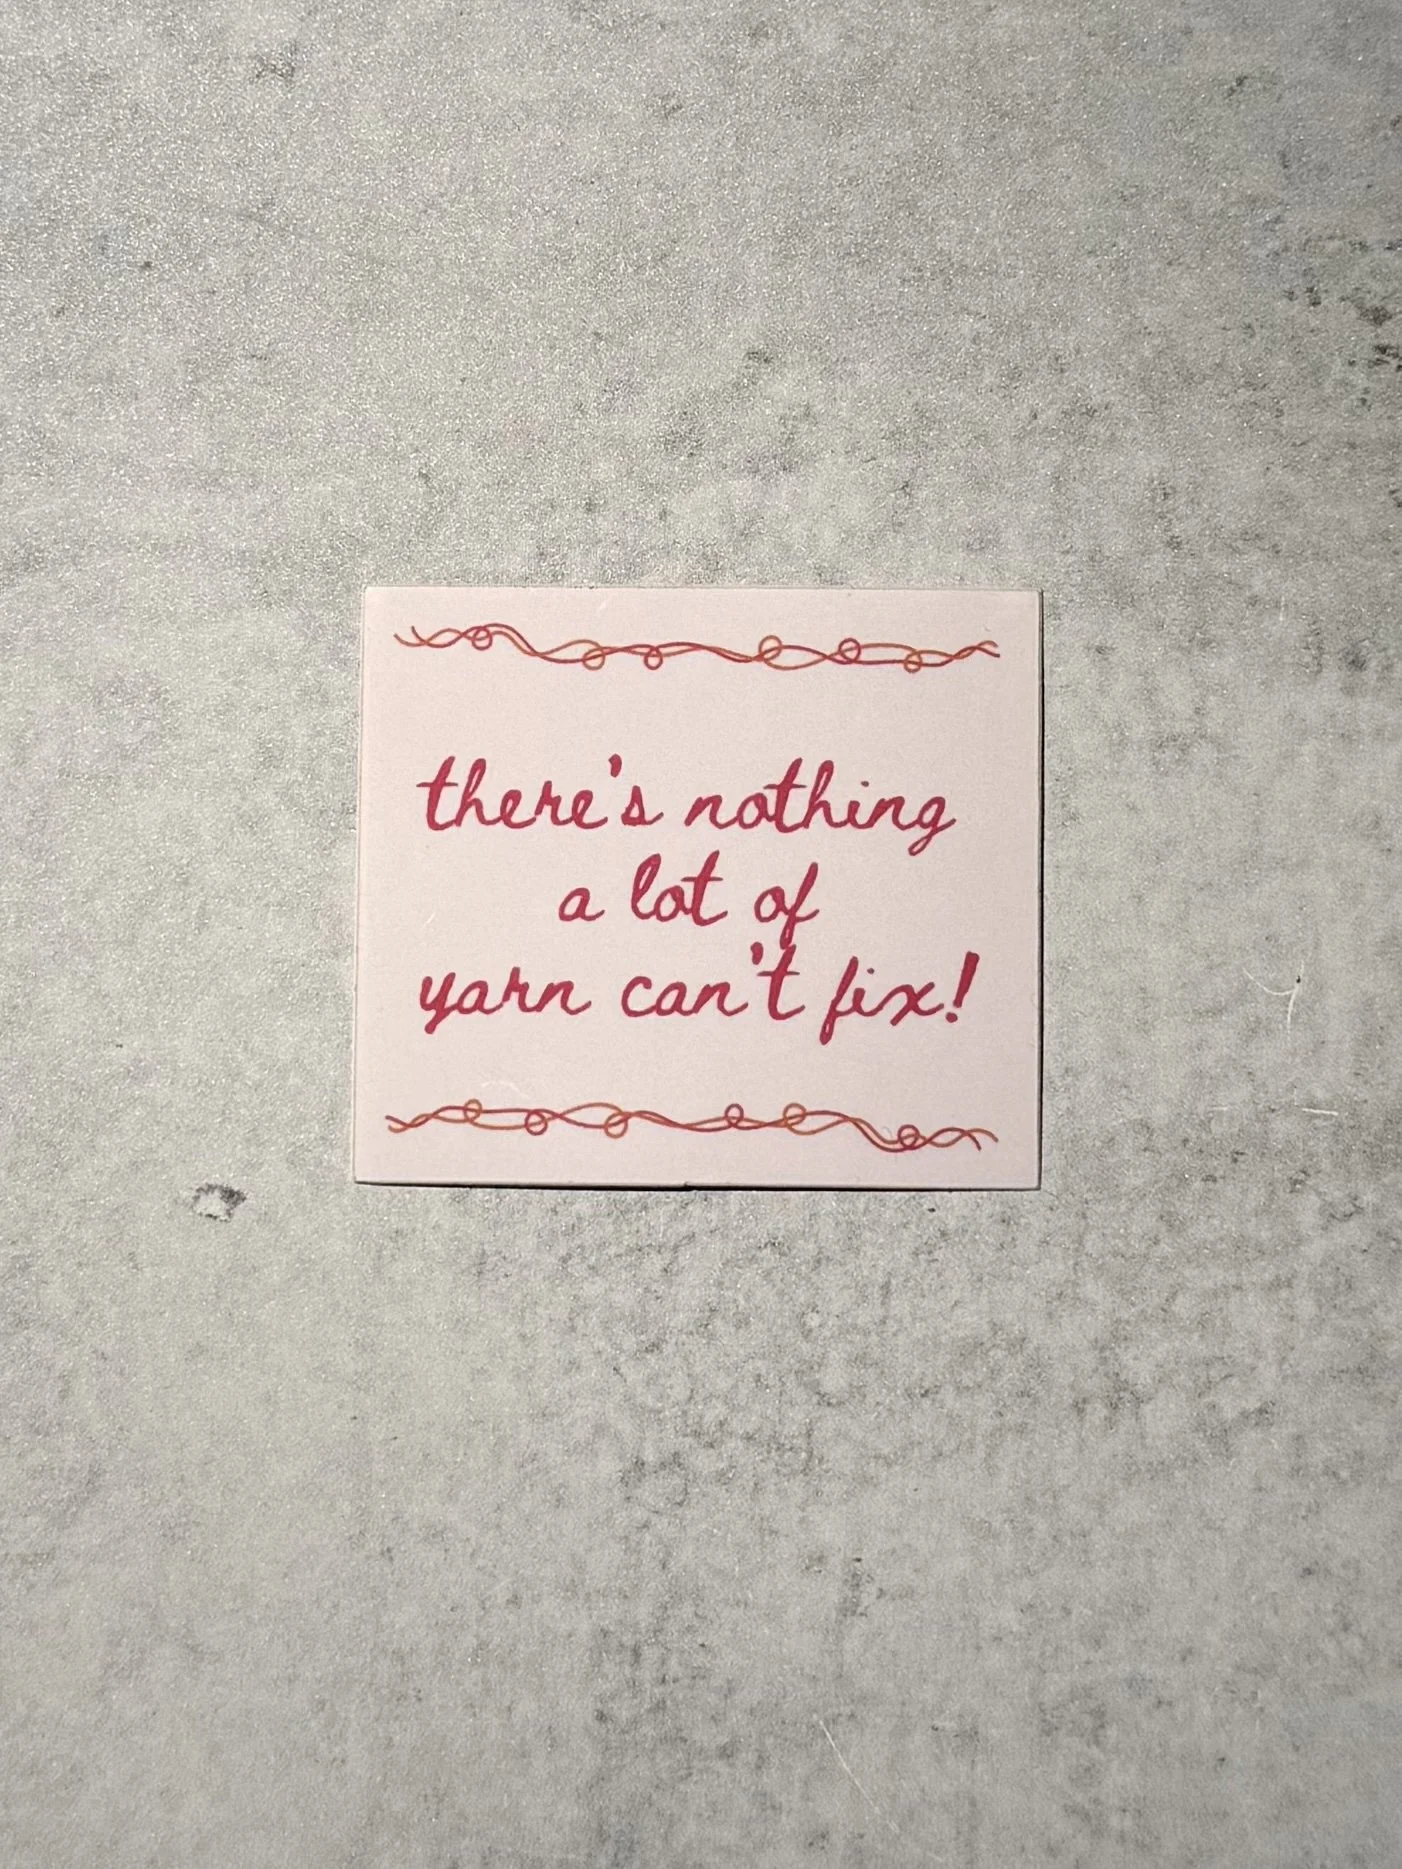 there's nothing
a lot of
yarn can't fix!